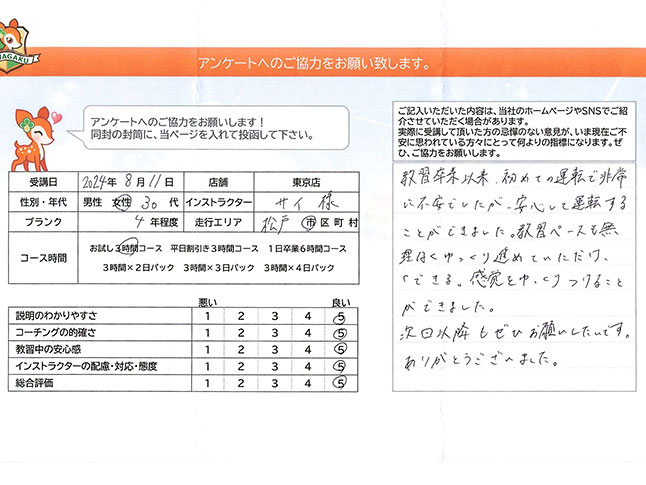 NAGAKU
アンケートへのご協力をお願い致します。
アンケートへのご協力をお願いします！
同封の封筒に、当ページを入れて投函して下さい。
受講日 2024年 8月11日 店舗 東京店
性別・年代 男性 女性 30代 インストラクター サイ 様
ブランク 4年程度 走行エリア 松戸 市区町村
コース時間 お試し3時間コース 平日割引き3時間コース 1日卒業6時間コース
3時間×2日パック 3時間×3日パック 3時間×4日パック
悪い 良い
説明のわかりやすさ 1 2 3 4 5
コーチングの的確さ 1 2 3 4 5
教習中の安心感 1 2 3 4 5
インストラクターの配慮・対応・態度 1 2 3 4 5
総合評価 1 2 3 4 5
ご記入いただいた内容は、当社のホームページやSNSでご紹
介させていただく場合があります。
実際に受講して頂いた方の忌憚のない意見が、いま現在ご不
安に思われている方々にとって何よりの指標になります。ぜ
ひ、ご協力をお願いします。
教習卒業以来、初めての運転で非常
に不安でしたが、安心して運転する
ことができました。教習ペースも無
理なくゆっくり進めていただけ、
できる。感覚をゆっくりつけること
ができました。
次回以降もぜひお願いしたいです。
ありがとうございました。